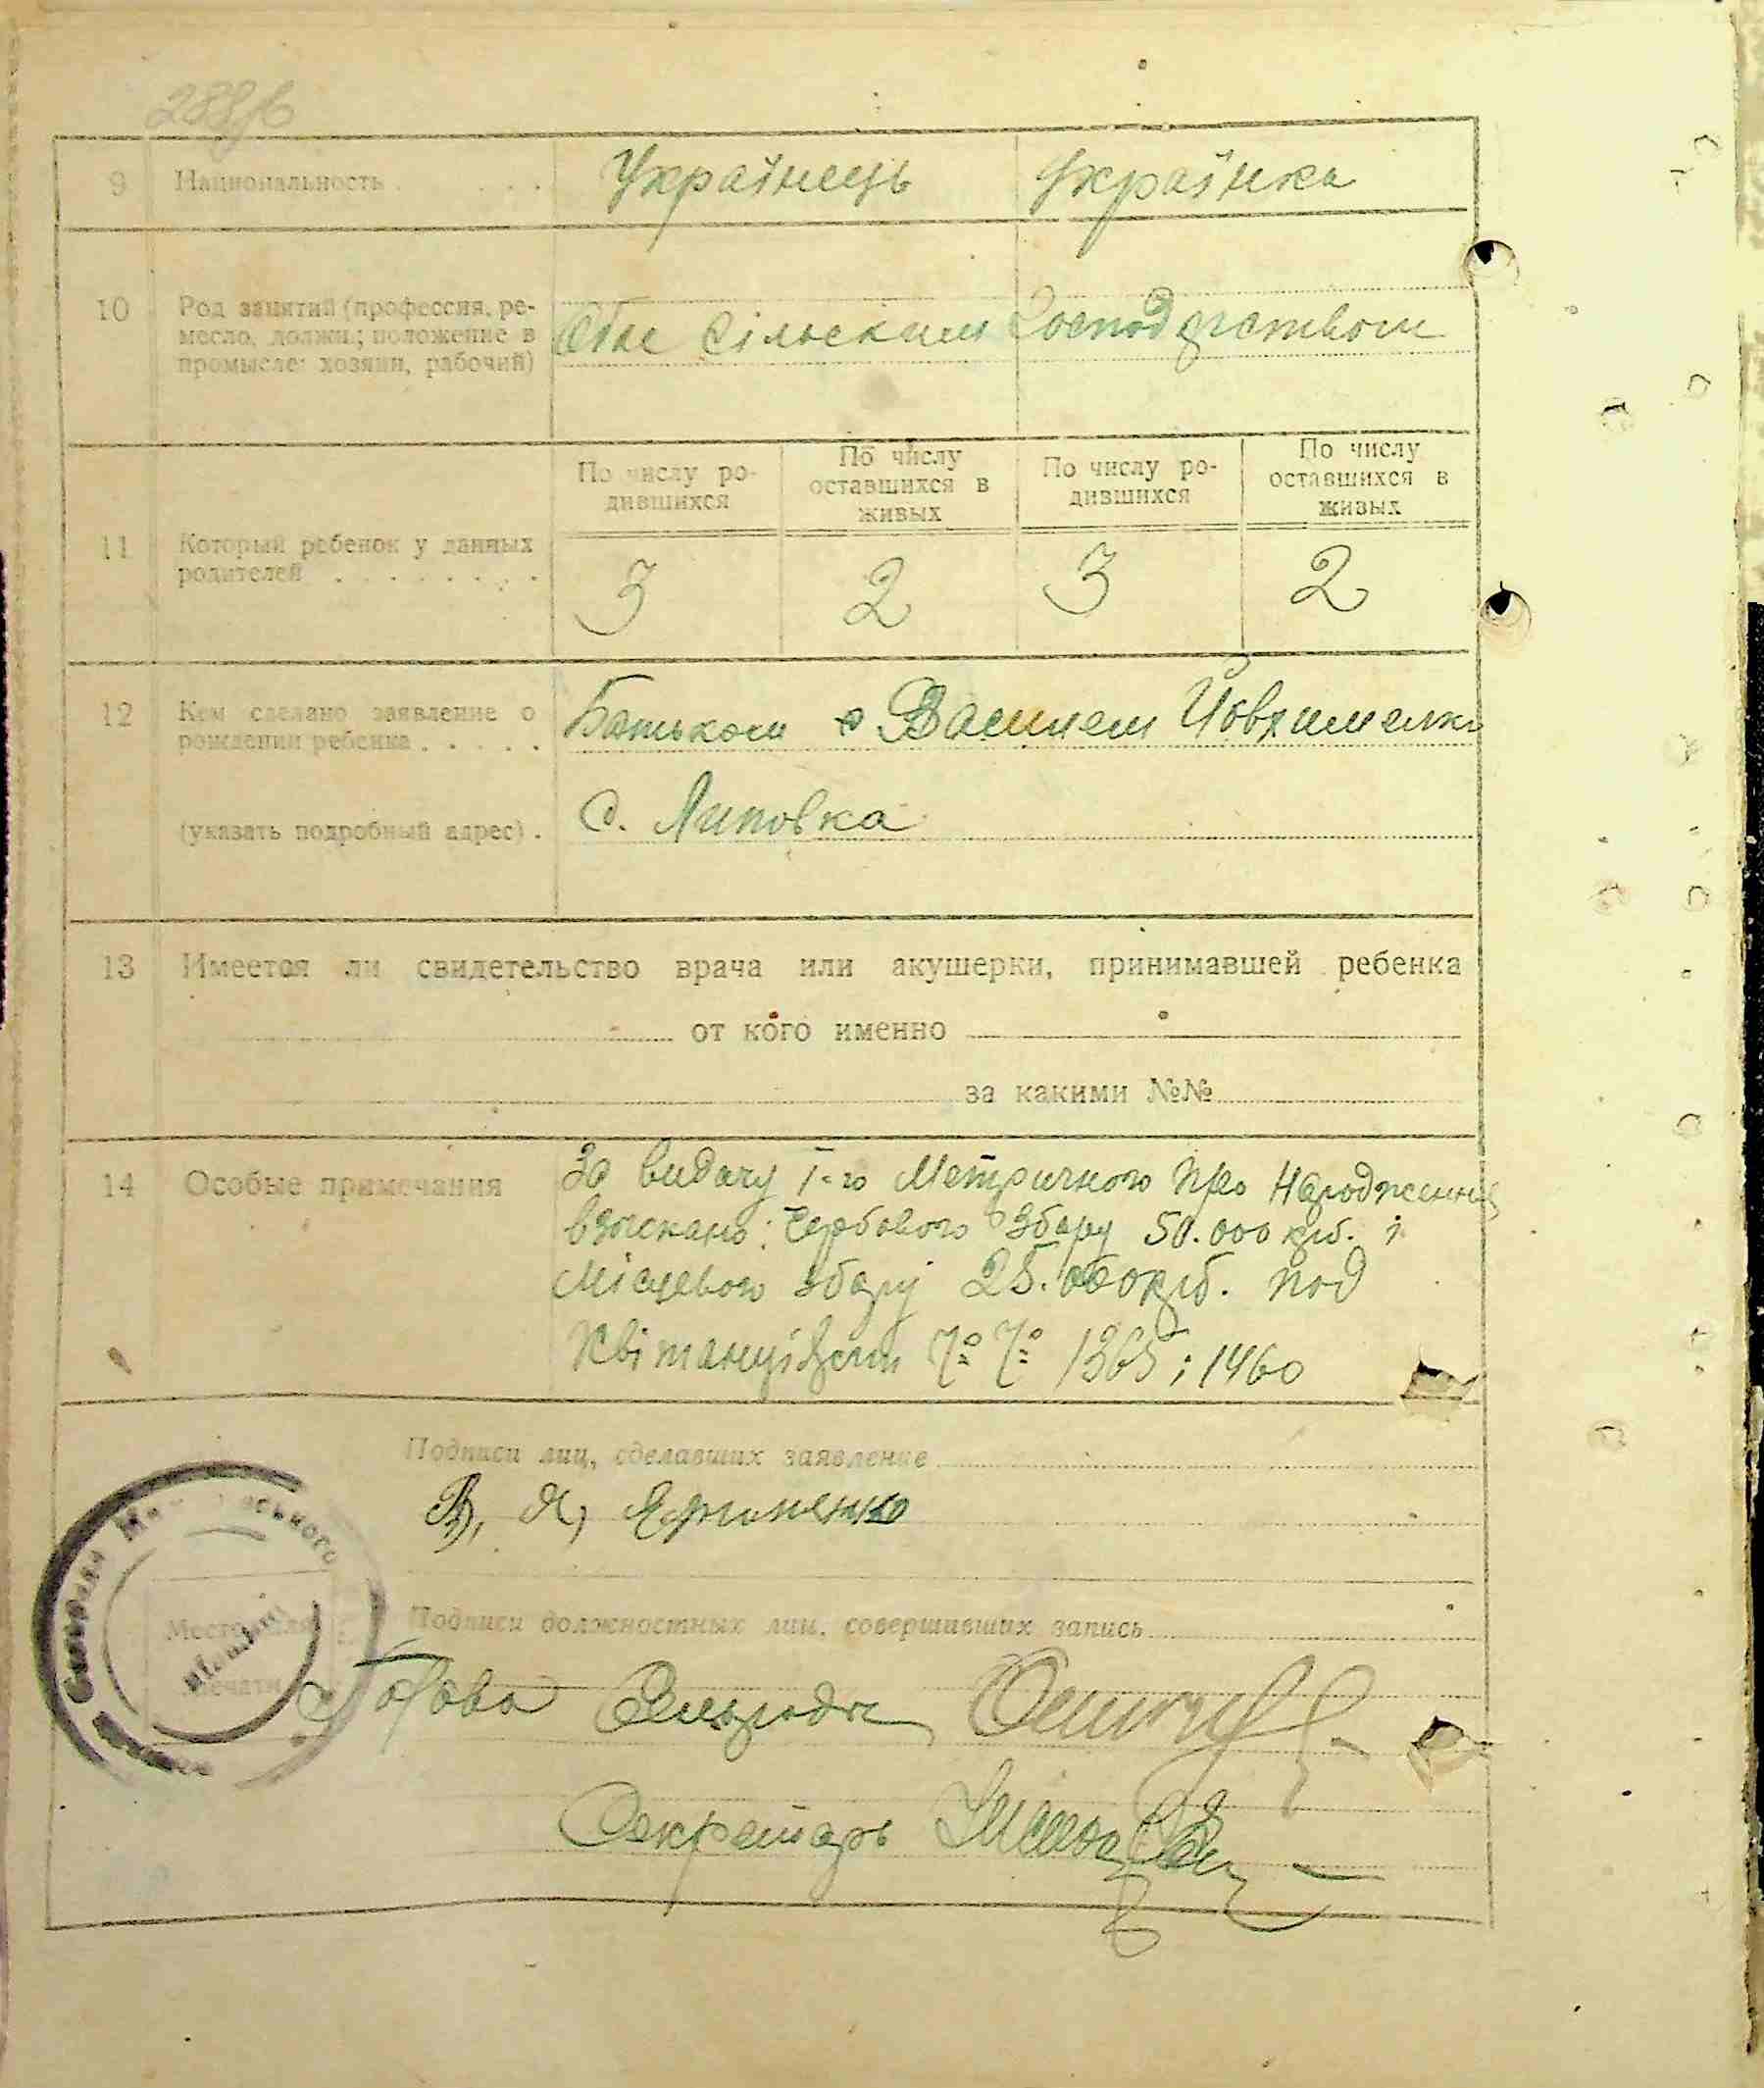 9 Национальность Українець Українка
10 Род занятий (профессия, ре-
месло, должн.; положение в
промысле: хозяин, рабочий)
Обое Сільским Господарством
По числу ро-
дившихся
По числу
оставшихся в
живых
По числу ро-
дившихся
По числу
оставшихся в
живых
11 Который ребенок у данных
родителей
3 2 3 2
12 Кем сделано заявление о
рождении ребенка
Батьком
(указать подробный адрес).
с. Липовка
13 Имеется ли свидетельство врача или акушерки, принимавшей ребенка
от кого именно
за какими №№
14 Особые примечания
За видачу 1-го Метричного про Народження
взыскано: Гербового Збору 50.000 крб. і
Місцевого збору 25.000 крб. под
Квітанціям №№ 1365 і 1460
Подписи лиц, сделавших заявление
В, Я,
Место для
печати
Подписи должностных лиц, совершивших запись
Голова Сільради
Секретарь